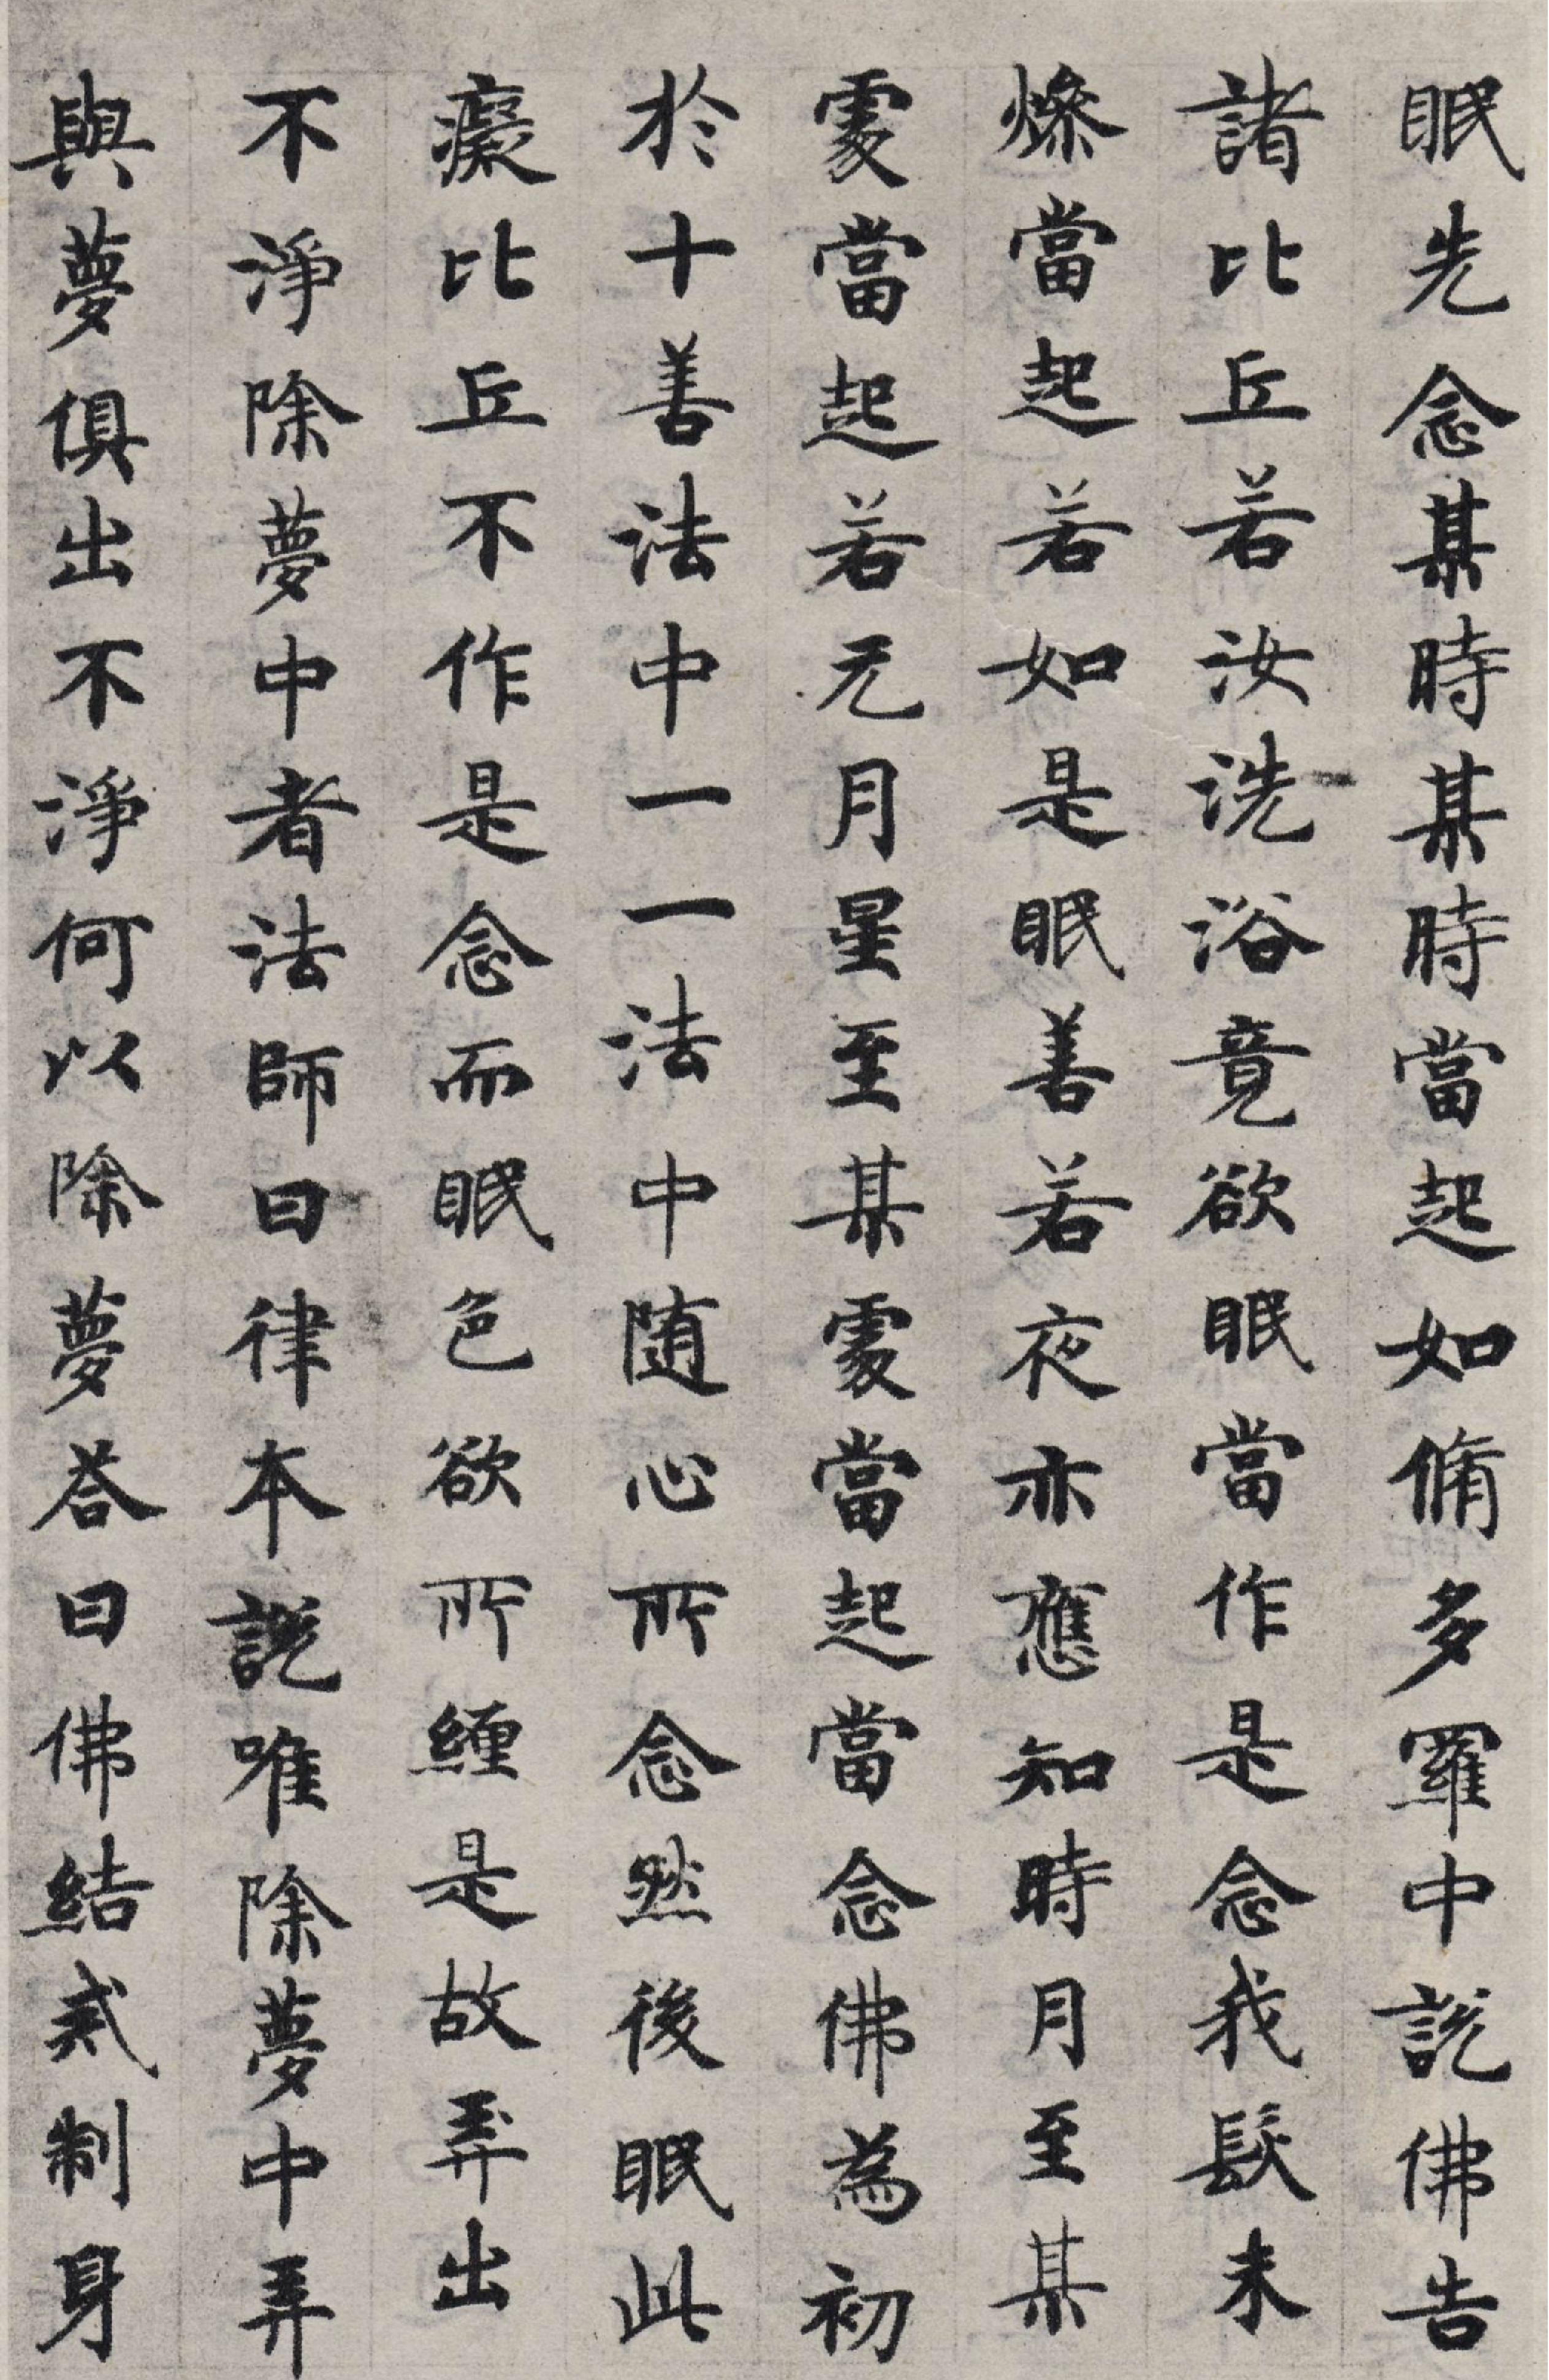 眠先念某時某時當起如脩多羅中說佛告
諸比丘若汝洗浴竟欲眠當作是念我髮未
燥當起若如是眠善若夜亦應知時月至某
處當起若无月星至某處當起當念佛為初
於十善法中一一法中随心所念然後眠此
癡比丘不作是念而眠色欲所纏是故弄出
不淨除夢中者法師曰律本說唯除夢中弄
與夢俱出不淨何以除夢荅曰佛結戒制身